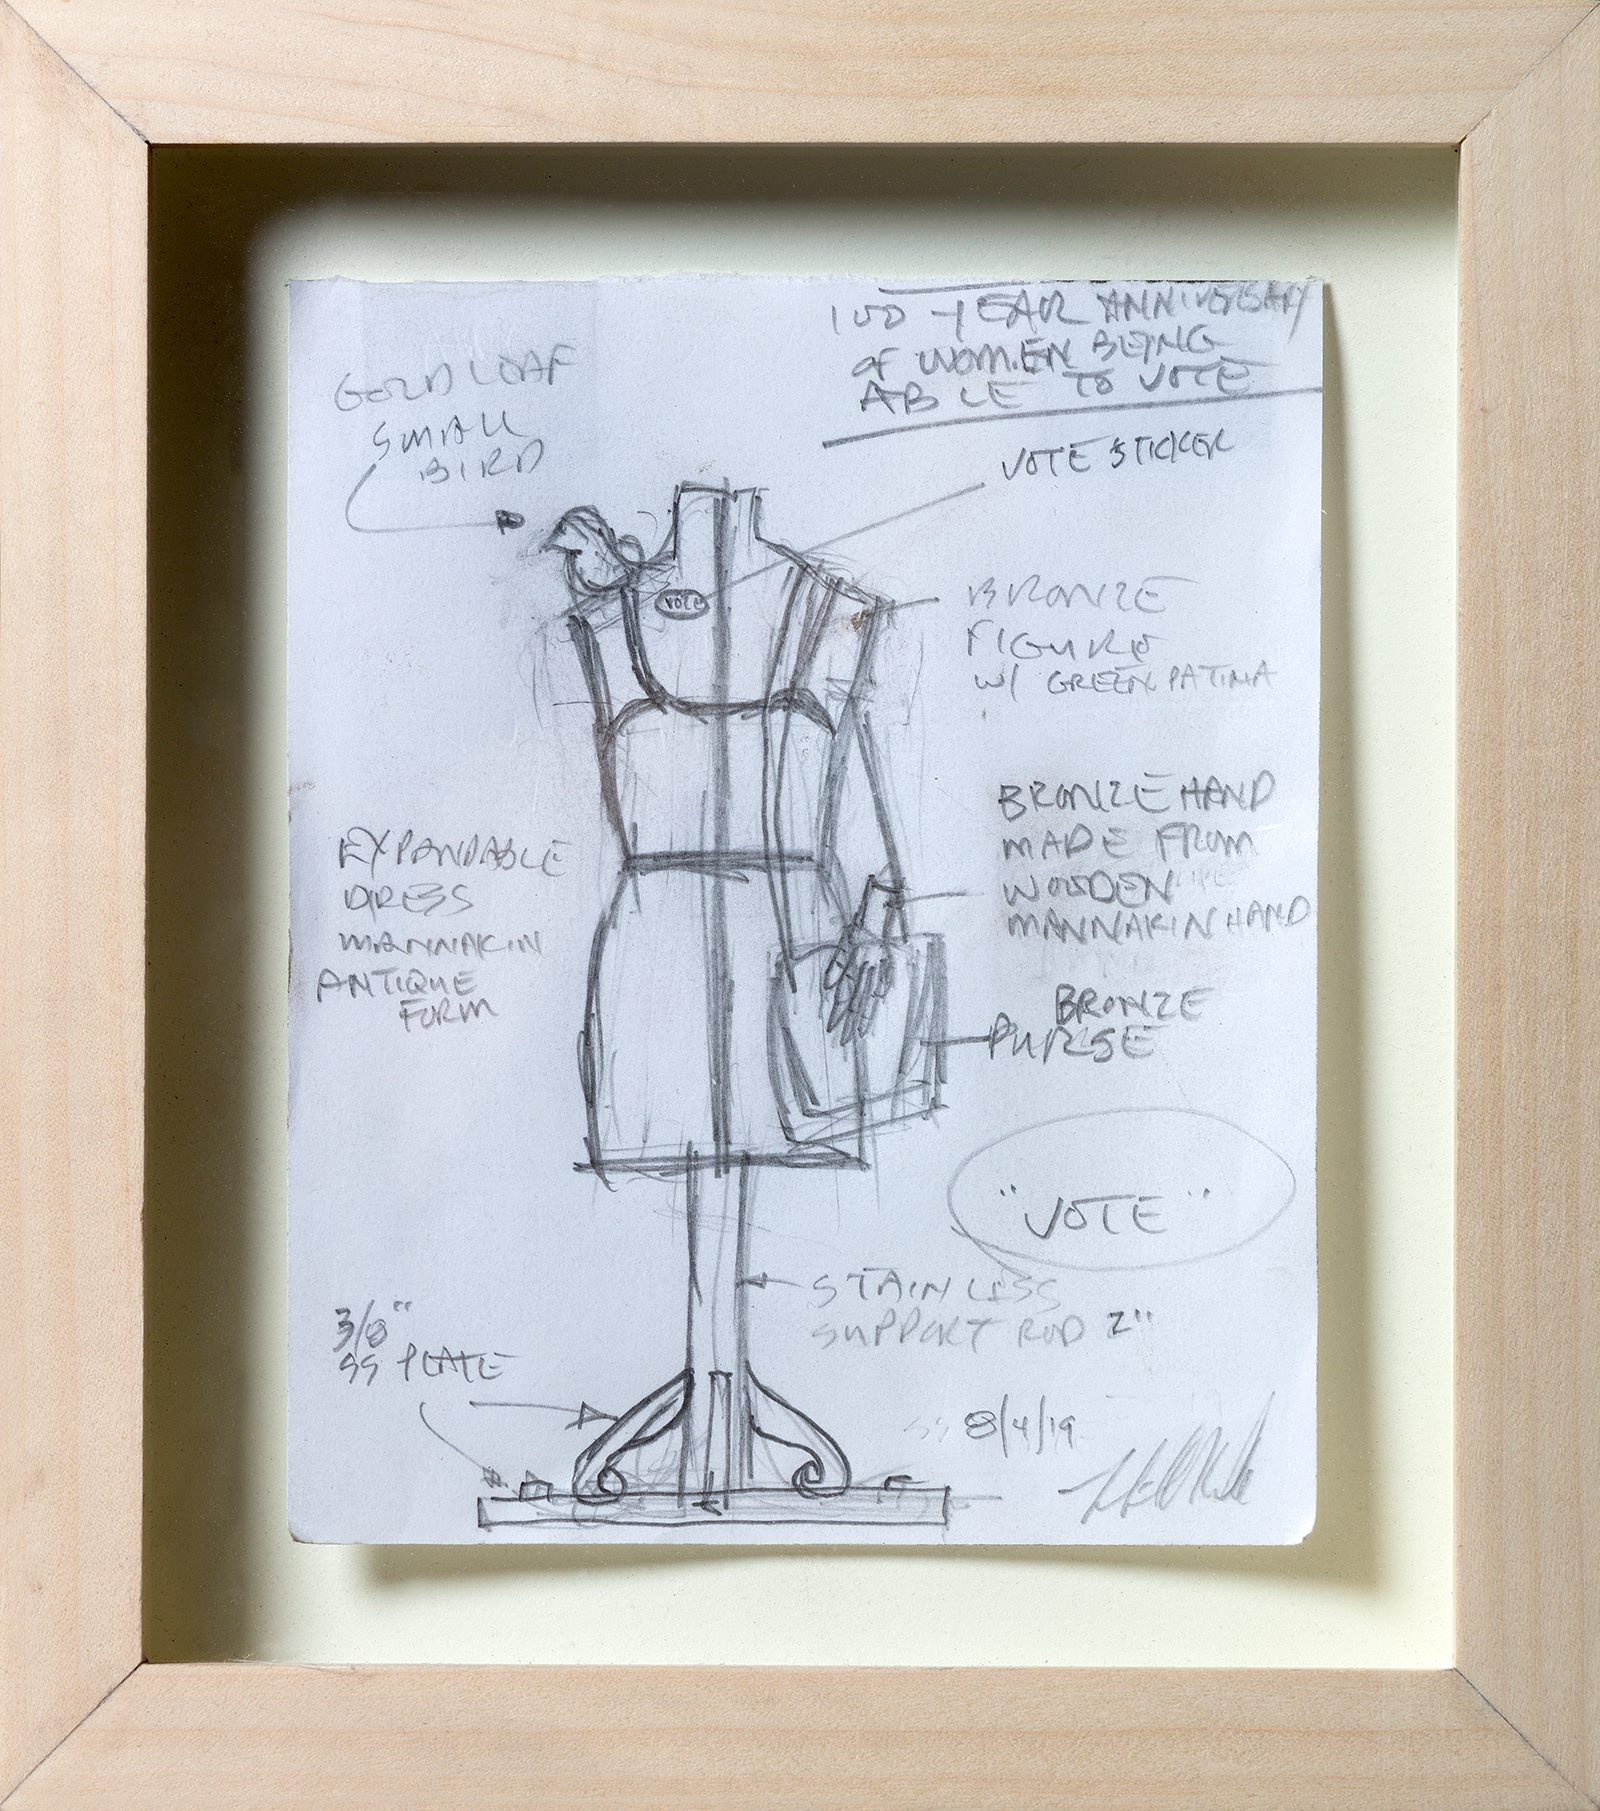 100 YEAR ANNIVERSARY
OF WOMEN BEING
ABLE TO VOTE
GOLD LEAF
SMALL
BIRD
VOTE STICKER
VOTE
BRONZE
FIGURE
W/ GREEN PATINA
BRONZE HAND
MADE FROM
WOODEN
MANNAKIN HAND
EXPANDABLE
DRESS
MANNAKIN
ANTIQUE
FORM
BRONZE
PURSE
"VOTE"
STAINLESS
SUPPORT ROD 2"
3/8"
SS PLATE
8/4/19